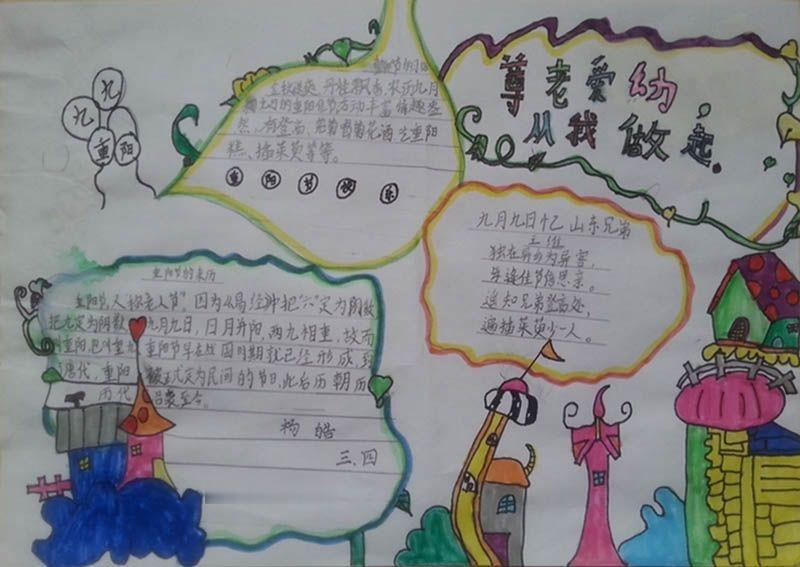 九九
重阳
尊老爱幼,
从我做起.
重阳节的习俗
金秋送爽、丹桂飘香,农历九月
九日的重阳佳节活动丰富,情趣盎
然,有登高、赏菊、喝菊花酒、吃重阳
糕、插茱萸等等。
重阳节快乐
九月九日忆山东兄弟
王维
独在异乡为异客,
每逢佳节倍思亲。
遥知兄弟登高处,
遍插茱萸少一人。
重阳节的来历
重阳节,又称老人节"。因为《易经》中把"六"定为阴数
把九定为阳数,九月九日,日月并阳,两九相重,故而
叫重阳,也叫重九,重阳节早在战国时期就已经形成,到
唐代,重阳被正式定为民间的节日,此后历朝历
历代沿袭至今。
杨皓
三.四